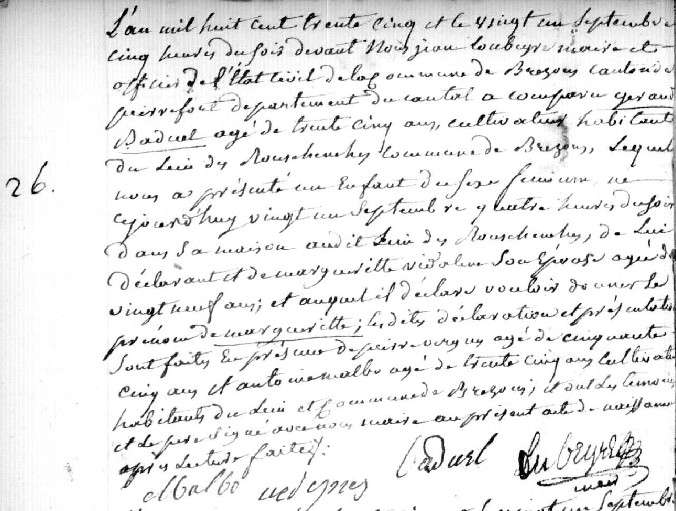 L'an mil huit cent trente cinq et le vingt un Septembre
cinq heures du soir devant Nous jean loubeyre maire et
officier de l'État civil de la Commune de Brezons canton de
pierrefort departement du cantal a comparu gerand
Baduel agé de trente cinq ans, cultivateur habitant
du Lieu des Rouschenches commune de Brezons, Lequel
26.
nous a présenté un Enfant du sexe feminin né
cejourd'huy vingt un Septembre quatre heures du soir
dans sa maison audit Lieu des Rouschenches, de Lui
déclarant et de margueritte vidalene Son Epouse agée de
vingt neuf ans; et auquel il déclare vouloir donner Le
prénom de margueritte; lesdites déclaration et présentation
Sont faites En présence de pierre vergnes agé de cinquante
cinq ans et antoine malbo agé de trente cinq ans Cultivate
habitants du Lieu et Commune de Brezons; et ont Les temoins
et Le pere signé avec nous maire au présent acte de naissance
après Lecture faite.
Baduel Lubeyre
malbo vedernes maire
vingt un Septembre